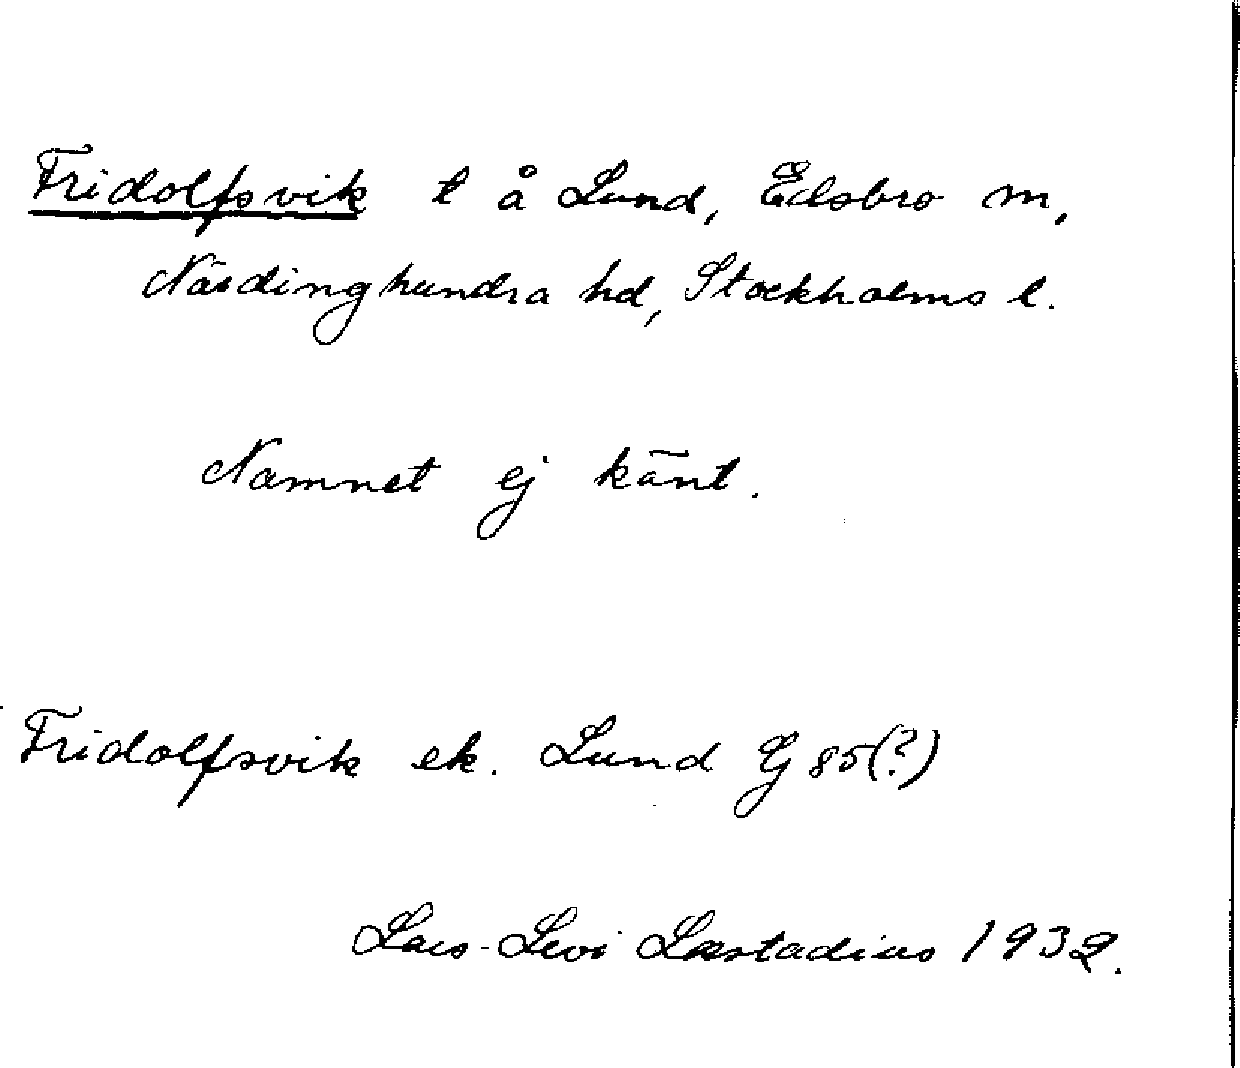 Fridolfsvik t å Lund, Edsbro sn,
Närdinghundra hd, Stockholms l.
Namnet ej känt.
Fridolfsvik ek. Lund Gj 85(?)
Lars-Levi Læstadius 1932.